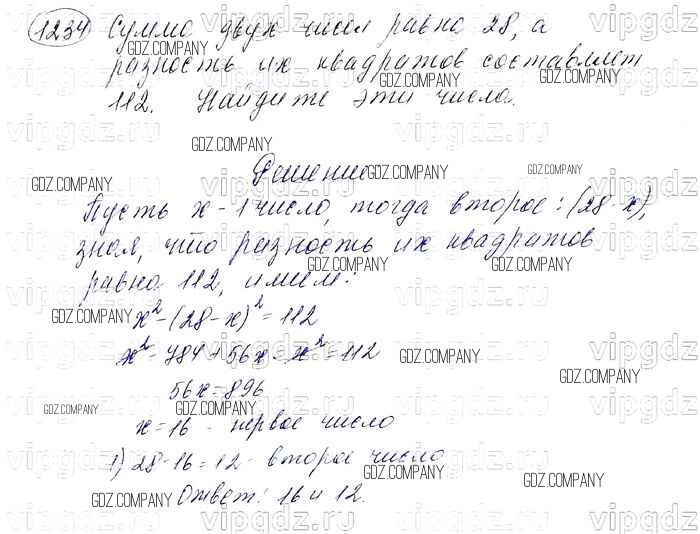 1234 Сумма двух чисел равна 28, а
разность их квадратов составляет
112. Найдите эти числа.
Решение
Пусть x - 1 число, тогда второе: (28-x),
зная, что разность их квадратов
равна 112, имеем:
x² - (28-x)² = 112
x² - 784 + 56x - x² = 112
56x = 896
x = 16 - первое число
1) 28-16=12 - второе число
Ответ: 16 и 12.
GDZ.COMPANY
vipgdz.ru